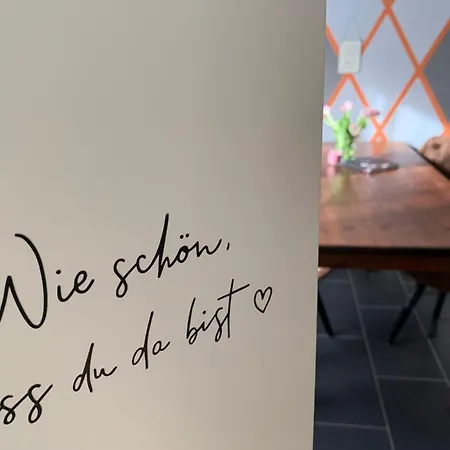 Wie schön,
ss du da bist ♡